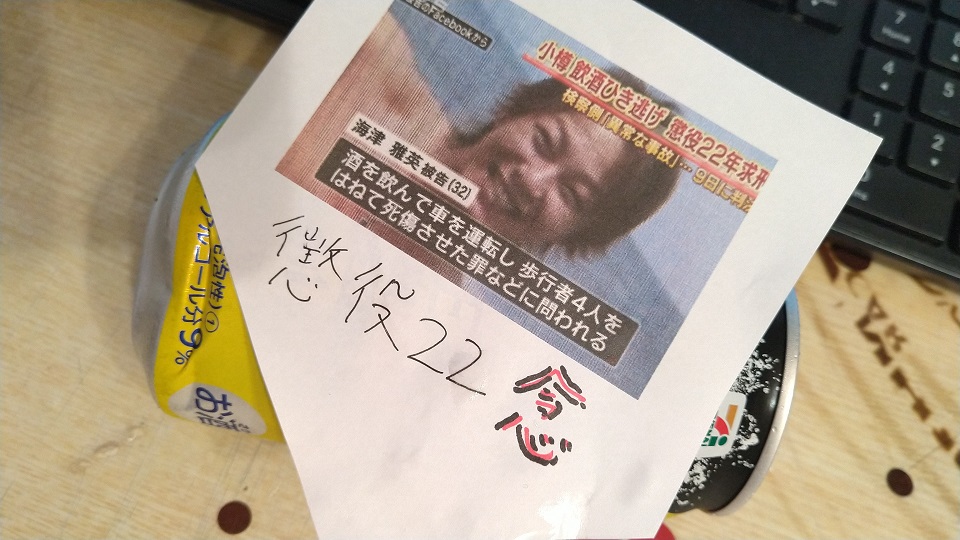 被告のFacebookから
小樽 飲酒ひき逃げ 懲役22年求刑
検察側「異常な事故」… 9日に判決
海津 雅英被告(32)
酒を飲んで車を運転し 歩行者4人を
はねて死傷させた罪などに問われる
懲役22
念
発泡性)①
アルコール分9%
お酒
7
Home
4
5
1
2